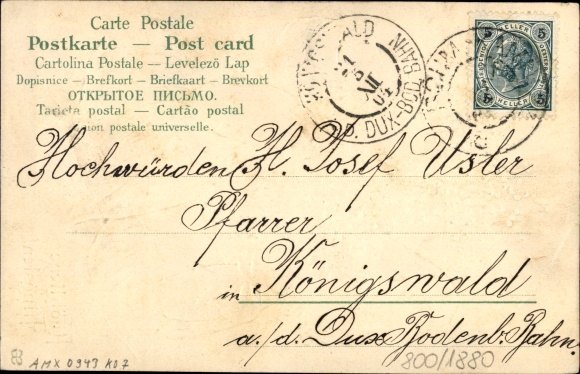 Carte Postale
Postkarte — Post card
Cartolina Postale — Levelező Lap
Dopisnice — Brefkort — Briefkaart — Brevkort
ОТКРЫТОЕ ПИСЬМО.
Tarjeta postal — Cartão postal
Union postale universelle.
5 HELLER 5
5 HELLER 5
DUX-BOD. BAHN
Hochwürden H. Josef Usler
Pfarrer
in Königswald
a./d. Dux Bodenb. Bahn.
AMX 0943 K07
800/1880